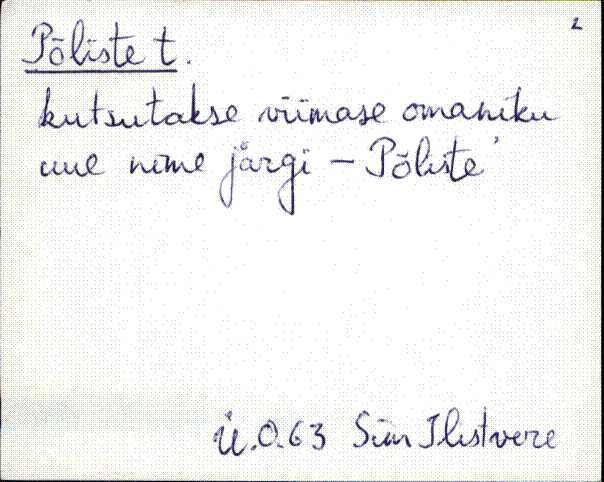 2
Põliste t.
kutsutakse viimase omaniku
uue nime järgi – Põliste'
Ü.O.63 Siim Ilistvere